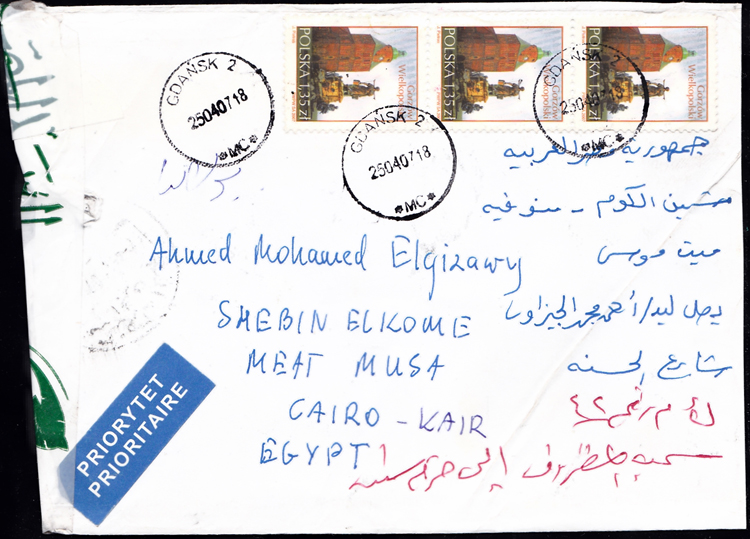 POLSKA 1,35 zł
Gorzów
Wielkopolski
POLSKA 1,35 zł
Gorzów
Wielkopolski
POLSKA 1,35 zł
Gorzów
Wielkopolski
GDAŃSK 2
250407 18
*MC*
GDAŃSK 2
250407 18
*MC*
250407
*MC*
جمهورية مصر العربيه
شبين الكوم - منوفيه
ميت موسى
يصل ليد/أحمد محمد الجيزاوى
شارع
Ahmed Mohamed Elgizawy
SHEBIN ELKOME
MEAT MUSA
CAIRO - KAIR
EGYPT
٤٢
PRIORYTET
PRIORITAIRE